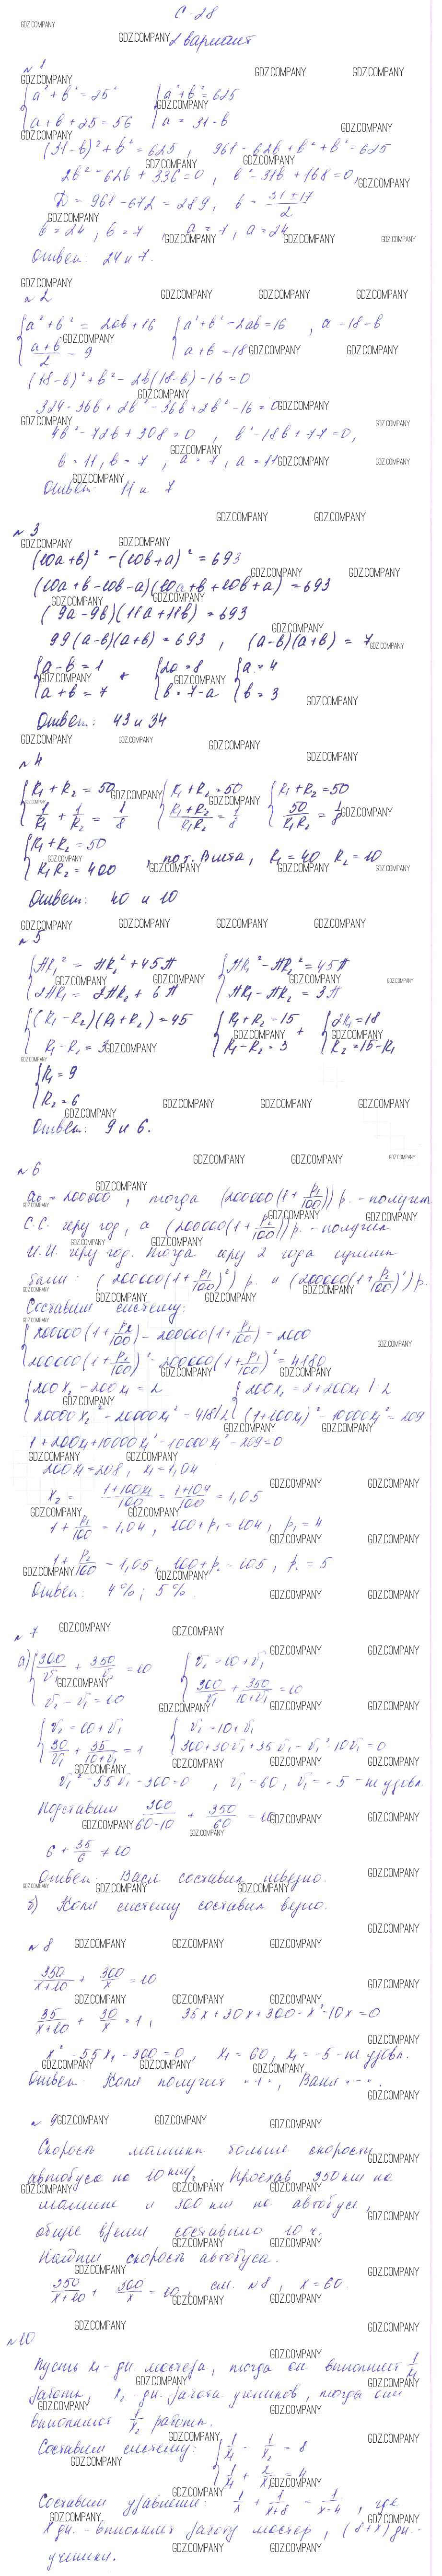 С-28
2 вариант
№ 1
{a² + b² = 25² {a² + b² = 625
{a + b + 25 = 56 {a = 31 - b
(31-b)² + b² = 625, 961 - 62b + b² + b² = 625
2b² - 62b + 336 = 0, b² - 31b + 168 = 0,
D = 961 - 672 = 289, b = (31 ± 17)/2
b = 24, b = 7, a = 7, a = 24
Ответ: 24 и 7.
№ 2
{a² + b² = 2ab + 16 {a² + b² - 2ab = 16, a = 18 - b
{(a+b)/2 = 9 {a + b = 18
(18-b)² + b² - 2b(18-b) - 16 = 0
324 - 36b + 2b² - 36b + 2b² - 16 = 0
4b² - 72b + 308 = 0, b² - 18b + 77 = 0,
b = 11, b = 7, a = 7, a = 11
Ответ: 11 и 7
№ 3
(10a+b)² - (10b+a)² = 693
(10a+b-10b-a)(10a+b+10b+a) = 693
(9a-9b)(11a+11b) = 693
99(a-b)(a+b) = 693, (a-b)(a+b) = 7
{a-b = 1 + {2a = 8 {a = 4
{a+b = 7 {b = 7-a {b = 3
Ответ: 43 и 34
№ 4
{R₁ + R₂ = 50 {R₁ + R₂ = 50 {R₁ + R₂ = 50
{1/R₁ + 1/R₂ = 1/8 {(R₁+R₂)/R₁R₂ = 1/8 {50/R₁R₂ = 1/8
{R₁ + R₂ = 50
{R₁R₂ = 400, по т. Виета, R₁ = 40 R₂ = 10
Ответ: 40 и 10
№ 5
{πR₁² = πR₂² + 45π {πR₁² - πR₂² = 45π
{2πR₁ = 2πR₂ + 6π {πR₁ - πR₂ = 3π
{(R₁-R₂)(R₁+R₂) = 45 {R₁+R₂ = 15 + {2R₁ = 18
{R₁-R₂ = 3 {R₁-R₂ = 3 {R₂ = 15-R₁
{R₁ = 9
{R₂ = 6
Ответ: 9 и 6.
№ 6
a₀ = 200000, тогда (200000(1+p₁/100)) р. - получит
С.С. через год, а (200000(1+p₂/100)) р. - получит
И.И. через год. Тогда через 2 года суммы
были: (200000(1+p₁/100)²) р. и (200000(1+p₂/100)²) р.
Составим систему:
{200000(1+p₂/100) - 200000(1+p₁/100) = 2000
{200000(1+p₂/100)² - 200000(1+p₁/100)² = 4180
1+200x₁+10000x₁²-10000x₁²-209=0
200x₁=208, x₁=1,04
x₂ = (1+100x₁)/100 = (1+104)/100 = 1,05
1 + p₁/100 = 1,04, 100+p₁=104, p₁=4
1 + p₂/100 = 1,05, 100+p₂=105, p₂=5
Ответ: 4%; 5%.
№ 7
а) {300/v₁ + 350/v₂ = 10 {v₂ = 10+v₁
{v₂ - v₁ = 10 {300/v₁ + 350/(10+v₁) = 10
{v₂ = 10+v₁ {v₂ = 10+v₁
{30/v₁ + 35/(10+v₁) = 1 {300+30v₁+35v₁-v₁²-10v₁=0
v₁²-55v₁-300=0, v₁=60, v₁=-5 - не удовл.
Подставим 300/(60-10) + 350/60 = 10
6 + 35/6 ≠ 10
Ответ: Вася составил неверно.
б) Коля систему составил верно.
№ 8
350/(x+10) + 300/x = 10
35/(x+10) + 30/x = 1, 35x+30x+300-x²-10x=0
x²-55x-300=0, x₁=60, x₁=-5 - не удовл.
Ответ: Коля получит "+", Ваня "-".
№ 9
Скорость машины больше скорости
автобуса на 10 км/ч. Проехав 350 км на
машине и 300 км на автобусе,
общее время составило 10 ч.
Найдите скорость автобуса.
350/(x+10) + 300/x = 10, см. №8, x=60.
№10
Пусть x₁ - дн. мастера, тогда он выполнит 1/x₁
работы, x₂ - дн. работа учеников, тогда они
выполнят 1/x₂ работы.
Составим систему: {1/x₁ - 1/x₂ = 8
{1/x₁ + 2/x₂ = 4
Составим уравнение: 1/x + 1/(x+8) = 1/(x-4), где
x дн. - выполнит работу мастер, (8+x) дн. -
ученики.
GDZ.COMPANY